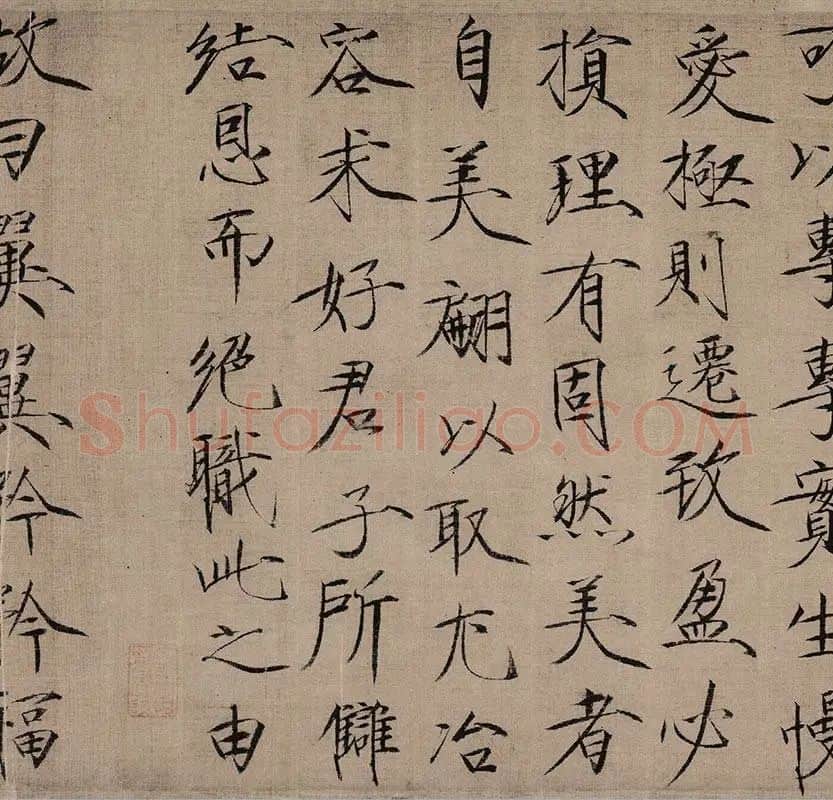 可以專專實生慢
愛極則遷致盈必
損理有固然美者
自美翩以取尤冶
容求好君子所讎
結恩而絕職此之由
故曰翼翼矜矜福
Shufaziliao.COM